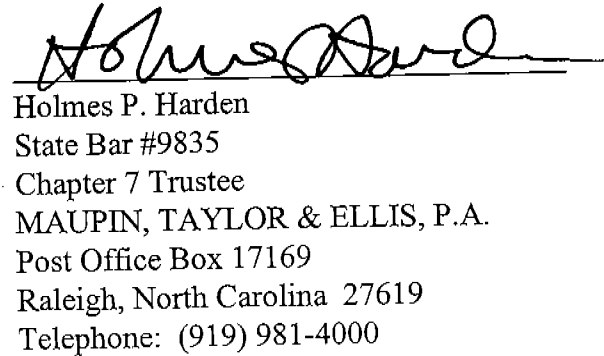 Holmes Harden
Holmes P. Harden
State Bar #9835
Chapter 7 Trustee
MAUPIN, TAYLOR & ELLIS, P.A.
Post Office Box 17169
Raleigh, North Carolina 27619
Telephone: (919) 981-4000